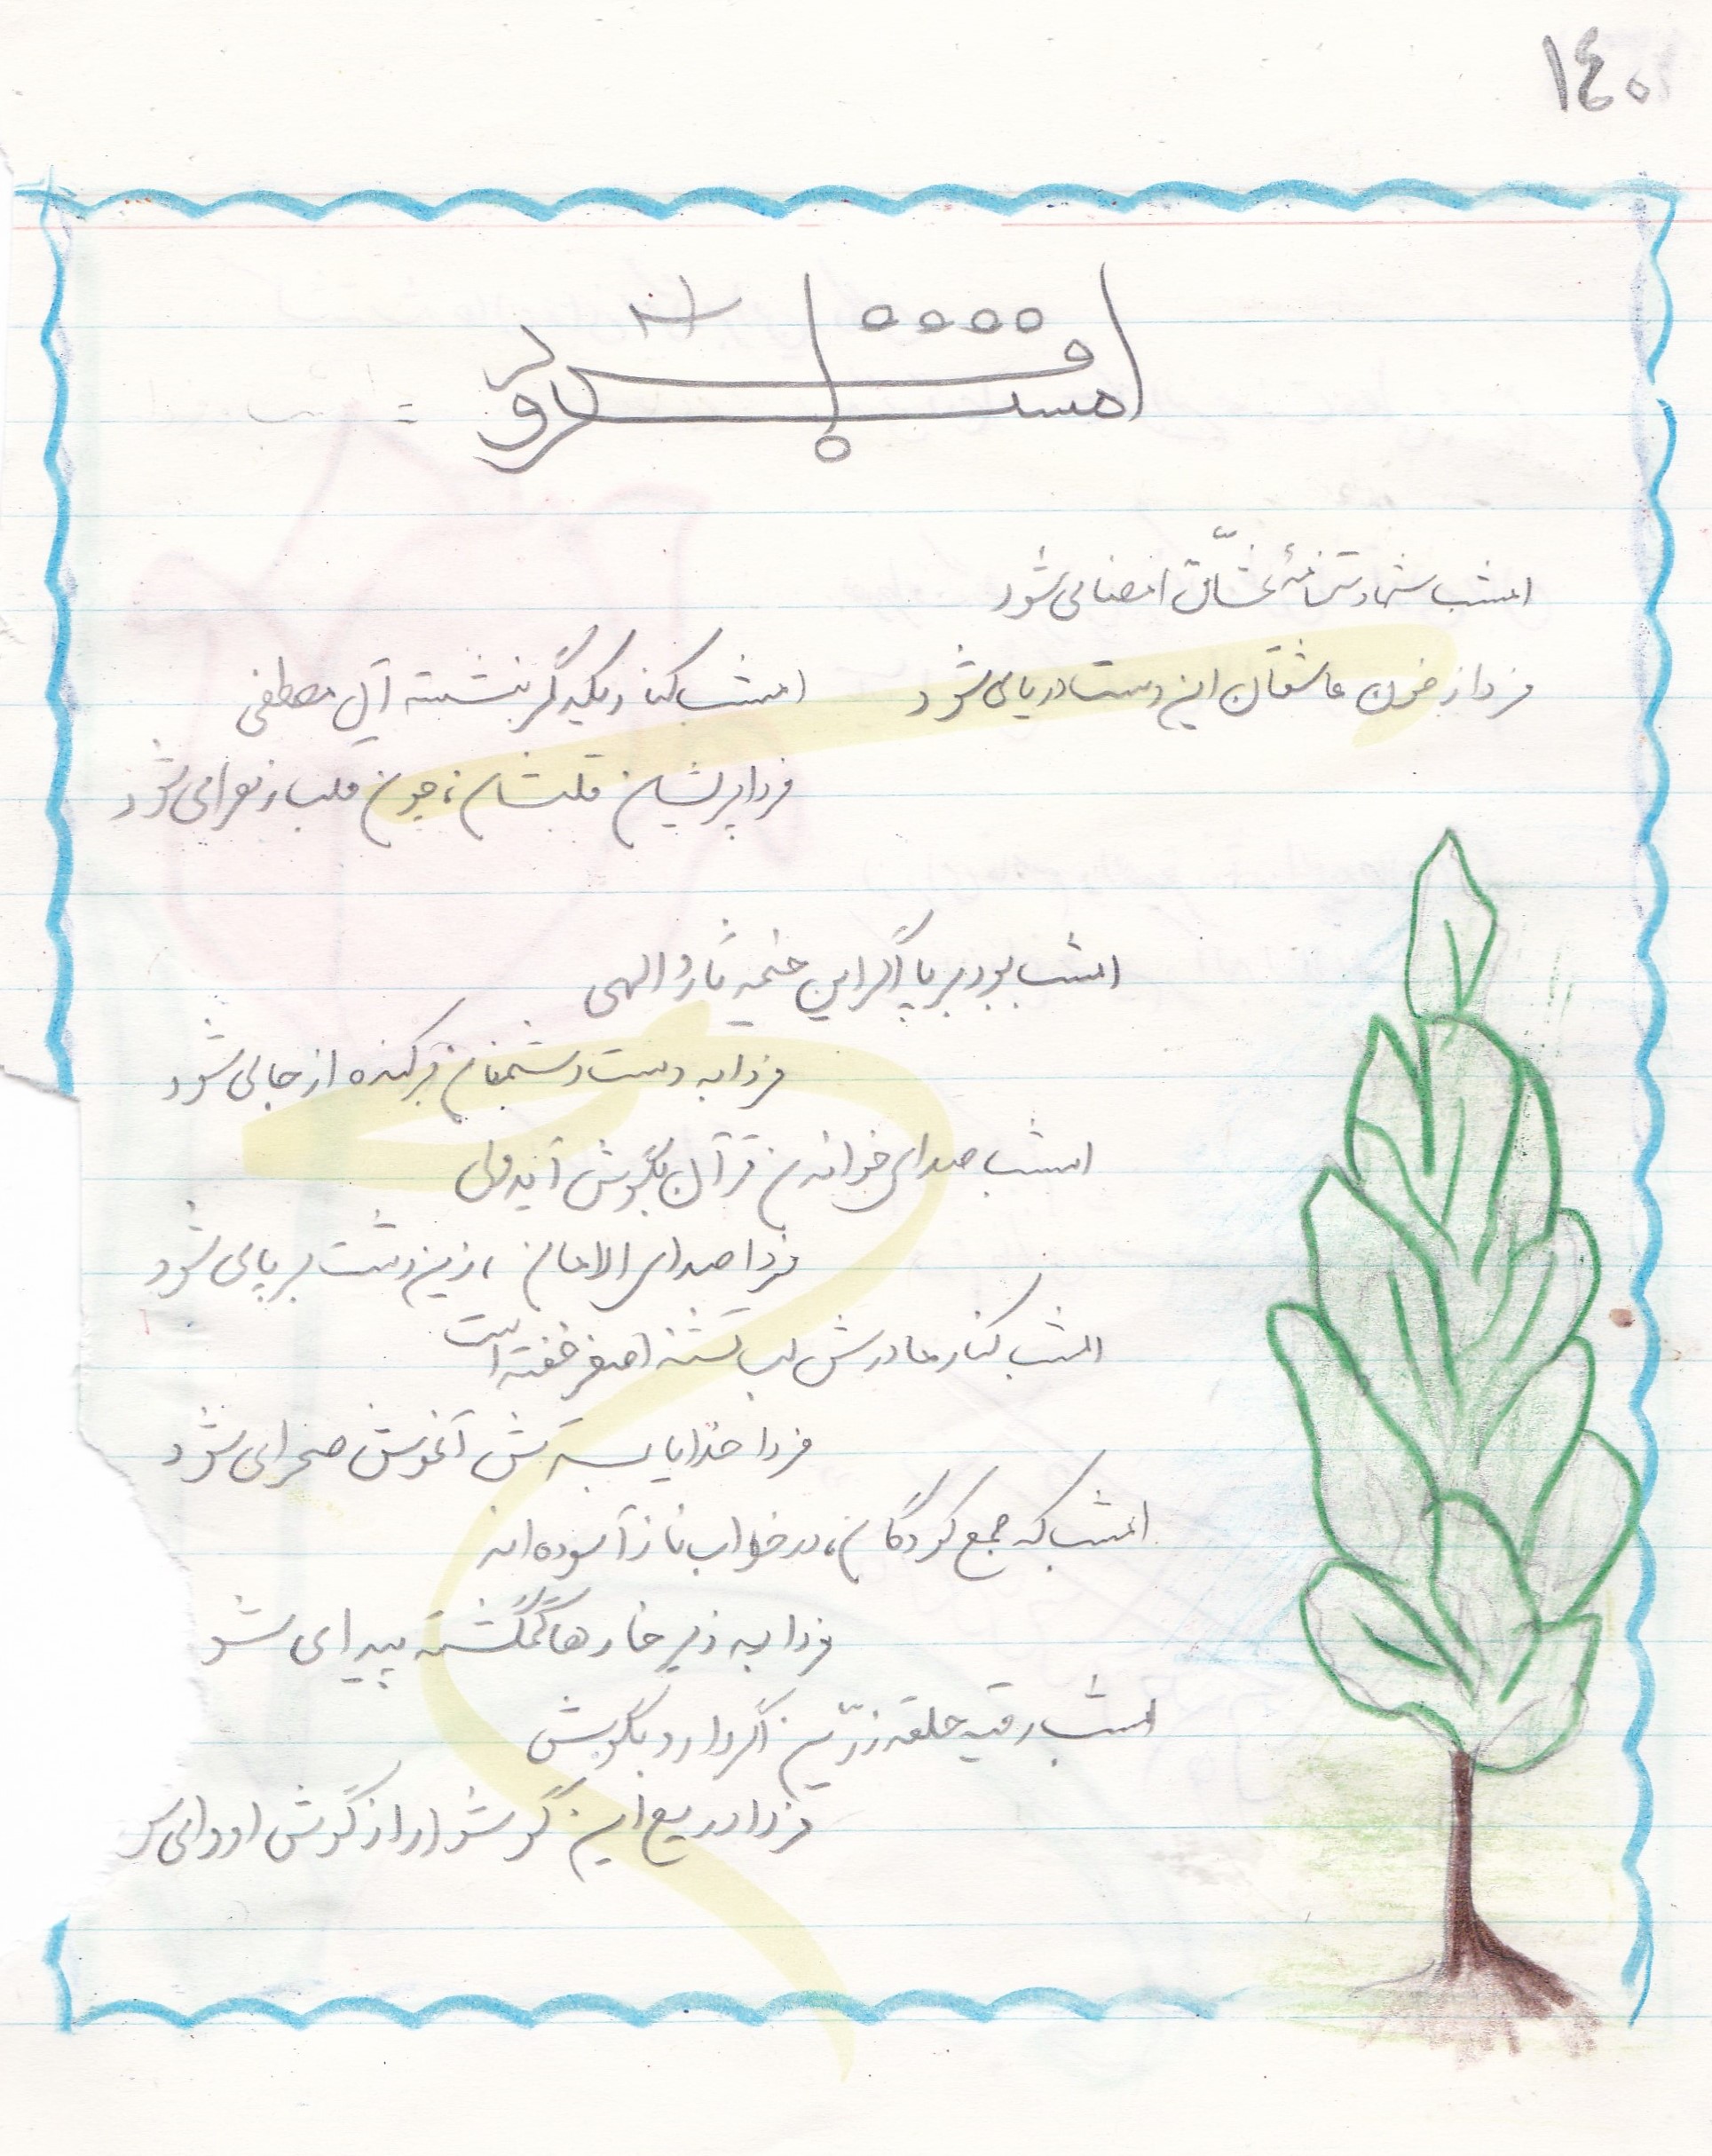 ١٤٠
امشب شهادتنامهٔ عشّاق امضا می شود
فردا ز خون عاشقان این دشت دریا می شود
امشب کنار یکدگر بنشسته آل مصطفی
فردا پریشان قلبشان، چون قلب زهرا می شود
امشب بود بر پا اگر این خیمه ثاراللهی
فردا به دست دشمنان برکنده از جا می شود
امشب صدای خواندن قرآن بگوش آید ولی
فردا صدای الامان، زین دشت بر پا می شود
امشب کنار مادرش لب تشنه اصغر خفته است
فردا خدایا بسترش آغوش صحرا می شود
امشب که جمع کودکان، در خواب ناز آسوده اند
فردا به زیر خارها گمگشته پیدا می شو
امشب رقیه حلقه زرّین اگر دارد بگوش
فردا دریغ این گوشوار از گوش او وا می